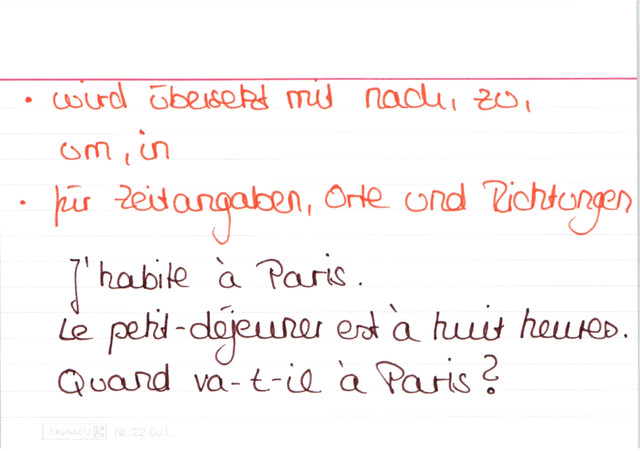 • wird übersetzt mit nach, zu,
um, in
• für Zeitangaben, Orte und Richtungen
J'habite à Paris.
Le petit-déjeuner est à huit heures.
Quand va-t-il à Paris?
Nr. 22 601